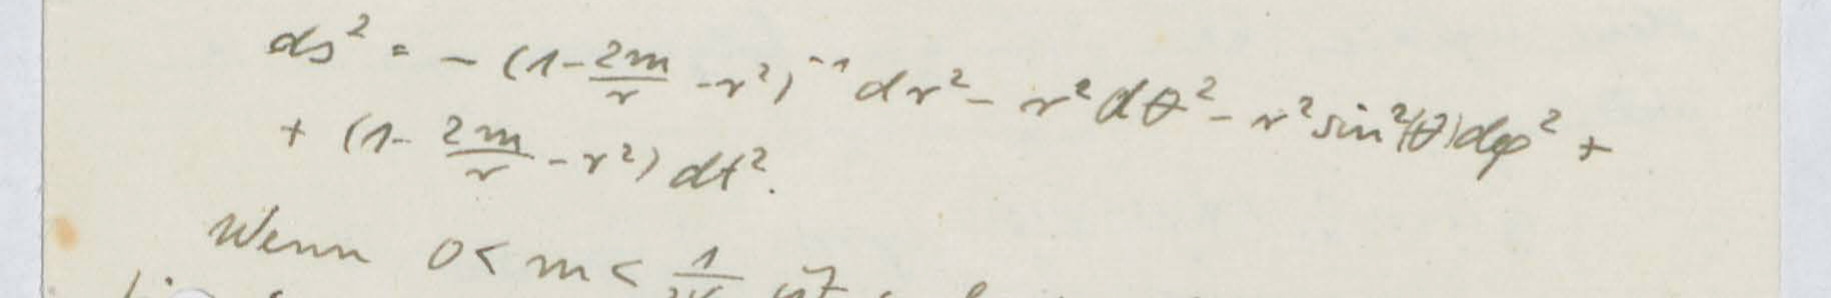 ds² = - (1 - 2m/r - r²)⁻¹ dr² - r² dθ² - r² sin²(θ) dφ² +
+ (1 - 2m/r - r²) dt².
Wenn 0 < m < 1/